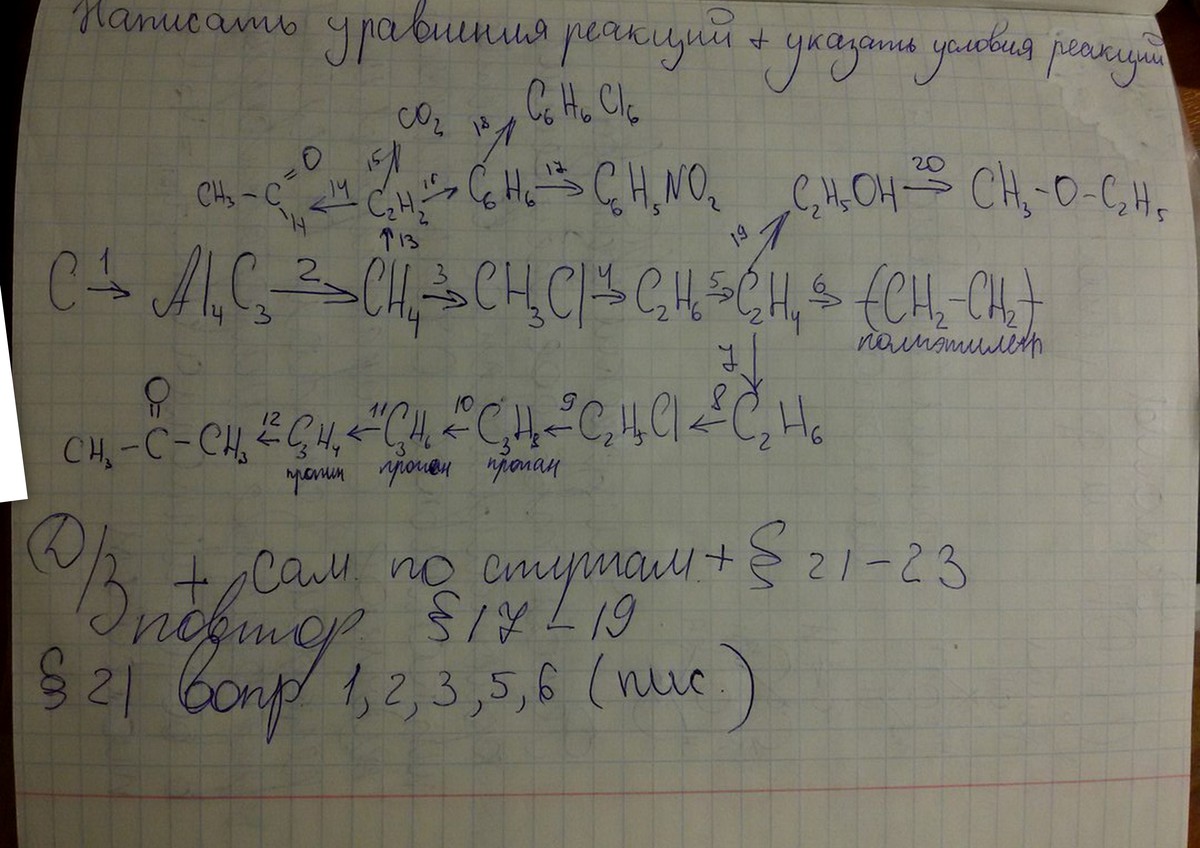 Написать уравнения реакций + указать условия реакций
CO₂ 18 C₆H₆Cl₆
CH₃-C=O H 14 15 C₂H₂ 15 C₆H₆ 17 C₆H₅NO₂ C₂H₅OH 20 CH₃-O-C₂H₅
↑13 19
C 1→ Al₄C₃ 2→ CH₄ 3→ CH₃Cl 4→ C₂H₆ 5→ C₂H₄ 6→ (CH₂-CH₂)
полиэтилен
7↓
O
CH₃-C-CH₃ ←12 C₃H₄ ←11 C₃H₆ ←10 C₃H₈ ←9 C₂H₅Cl ←8 C₂H₆
пропин пропен пропан
Д/З + Сам. по ступам. + § 21-23
повтор § 17-19
§ 21 вопр 1, 2, 3, 5, 6 (пис.)